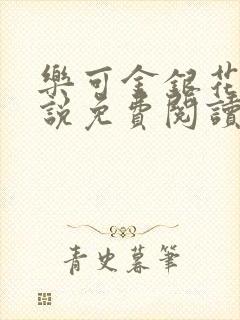 樂可金銀花
說免費閱讀
青史暮筆